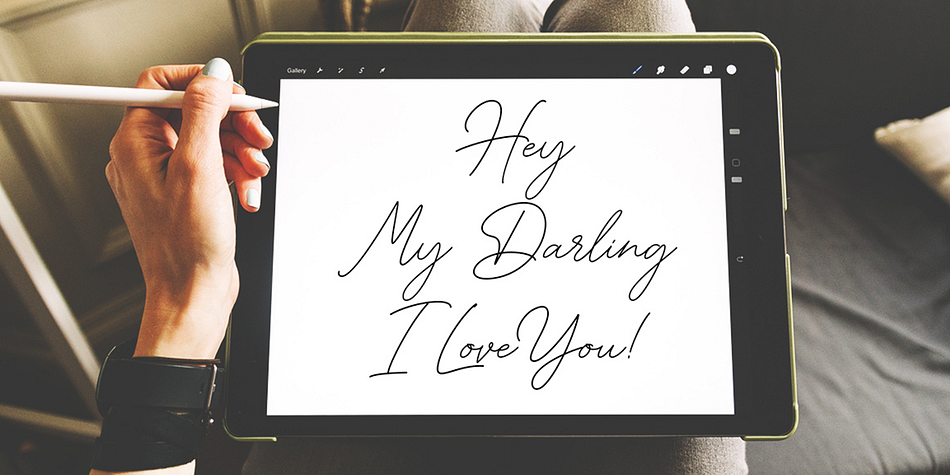 Gallery
Hey
My Darling
I Love You!